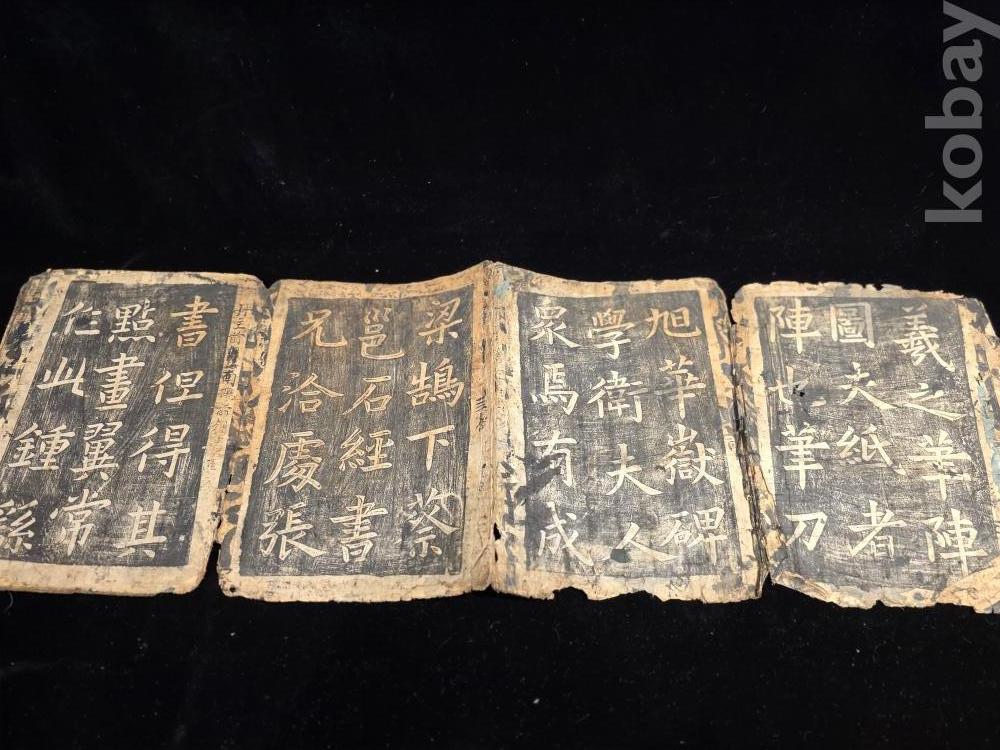 羲之筆陣
圖夫紙者
陣也筆刀
旭華嶽碑
學衛夫人
衆焉有成
梁鵠下蔡
邕石經書
兄洽處張
書但得其
點畫翼常
此鍾繇
kobay